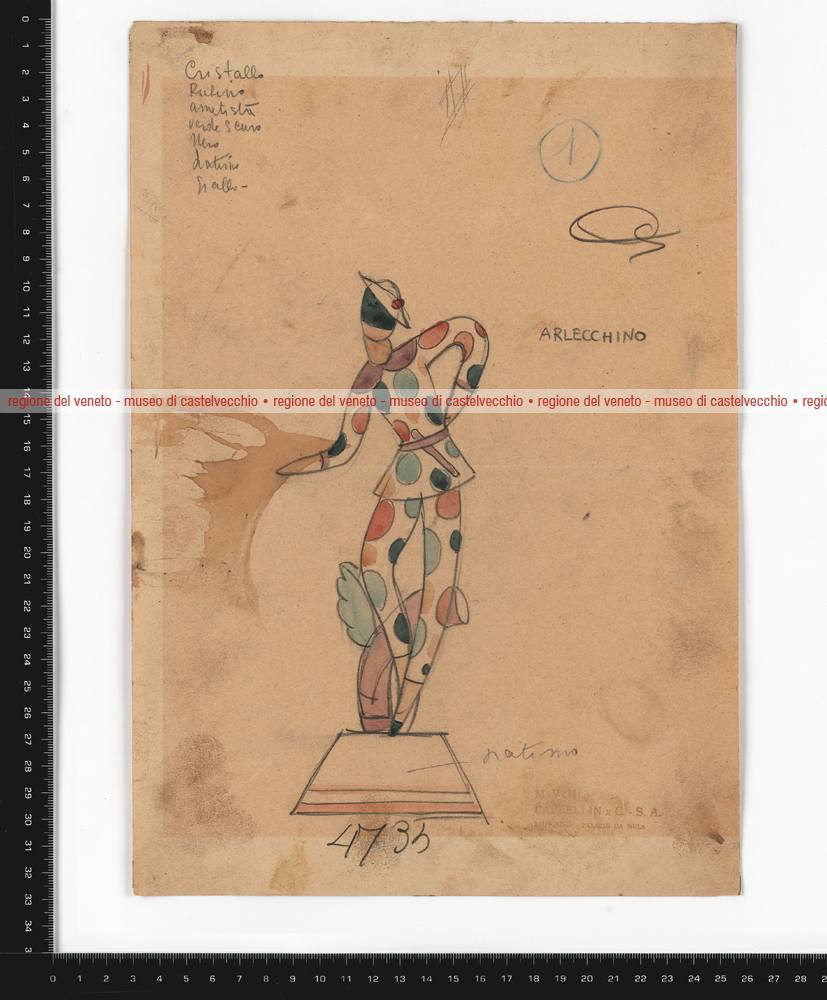 Cristallo
Rubino
ametista
verde scuro
Nero
lattimo
Giallo -
1
ARLECCHINO
regione del veneto - museo di castelvecchio • regione del veneto - museo di castelvecchio • regione del veneto - museo di castelvecchio • regio
lattimo
4735
M.V.M.
CAPPELLIN & C. - S. A.
MURANO - PALAZZO DA MULA
0
1
2
3
4
5
6
7
8
9
10
11
12
13
15
16
17
18
19
20
21
22
23
24
25
26
27
28
29
30
31
32
33
34
0 1 2 3 4 5 6 7 8 9 10 11 12 13 14 15 16 17 18 19 20 21 22 23 24 25 26 27 28